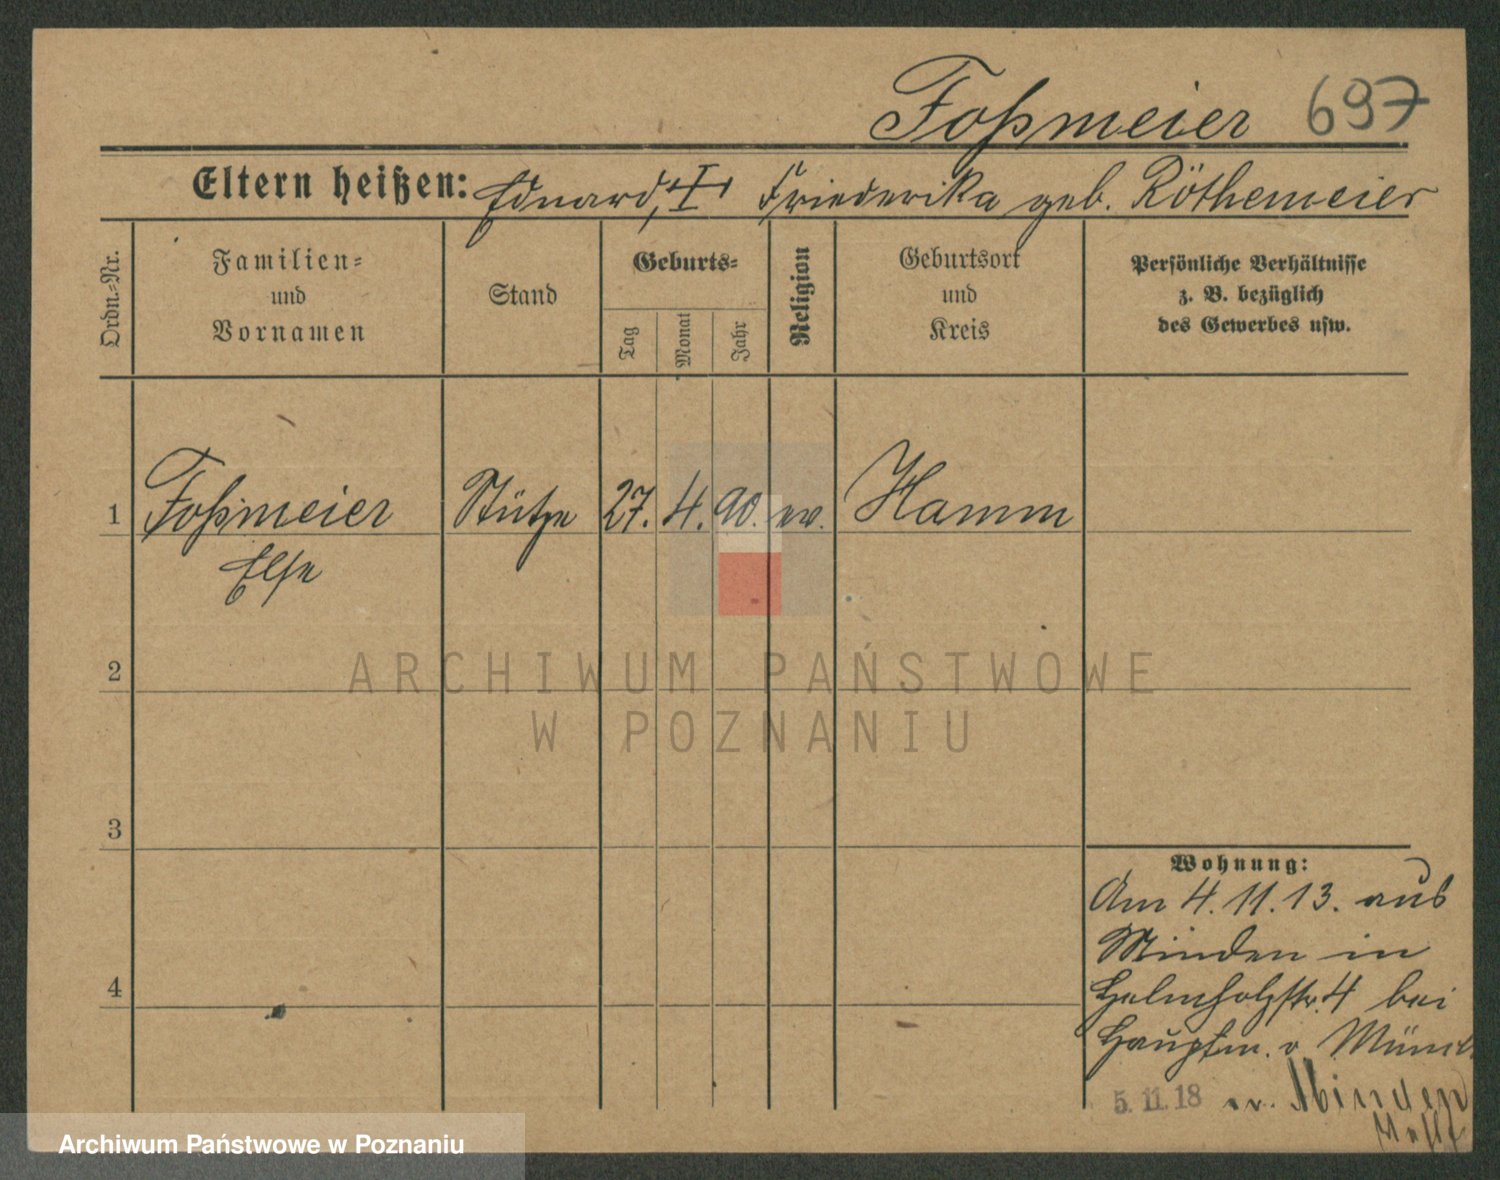 Foßmeier 697
Eltern heißen: Eduard, Friederika geb. Röthemeier
Ordn.=Nr.
Familien=
und
Vornamen
Stand
Geburts=
Tag
Monat
Jahr
Religion
Geburtsort
und
Kreis
Persönliche Verhältnisse
z. B. bezüglich
des Gewerbes usw.
1 Foßmeier Stütze 27. 4. 90. ev. Hamm
Else
2
3
4
ARCHIWUM PAŃSTWOWE
W POZNANIU
Wohnung:
Am 4.11.13. aus
Minden in
Helmholzstr. 4 bei
Hauptm. v
5.11.18 Minden
Archiwum Państwowe w Poznaniu